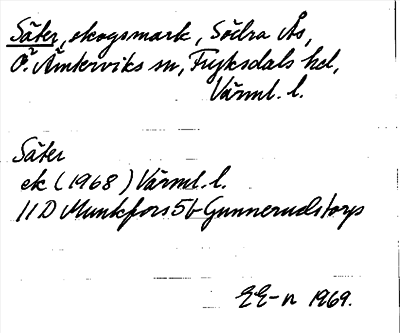 Säter, skogsmark, Södra Ås,
Ö. Ämterviks sn, Fryksdals hd,
Värml. l.
Säter
ek (1968) Värml. l.
11D Munkfors 5b Gunnerudstorp
EE-n 1969.